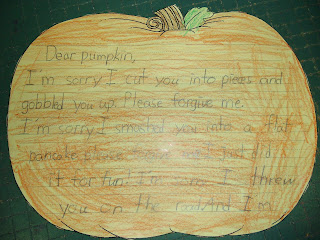 Dear pumpkin,
I'm sorry I cut you into pieces and
gobbled you up. Please forgive me.
I'm sorry I smashed you into a flat
pancake I just did
it for fun! I'm I threw
you on the And I'm